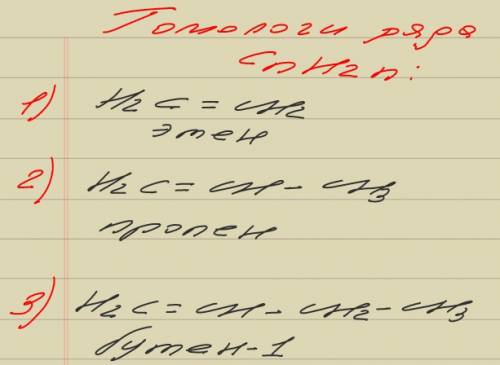 Гомологи ряда
CnH2n:
1) H2C = CH2
этен
2) H2C = CH - CH3
пропен
3) H2C = CH - CH2 - CH3
бутен-1